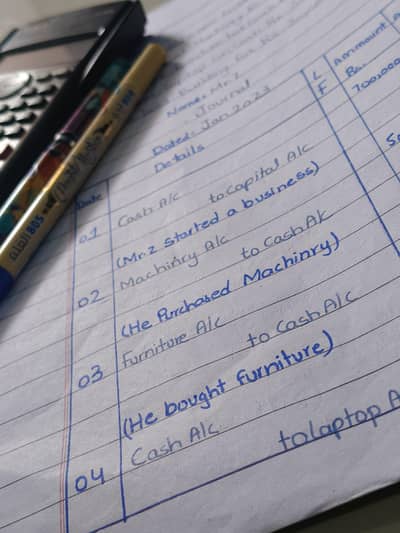 Name:- Mr. Z
Journal
Dated:- Jan 2023
Date
Details
L
F
Ammount
Rs.
01
Cash A/c
to Capital A/c
700,000
(Mr. Z started a business)
02
Machinry A/c
to Cash A/c
(He Purchased Machinry)
03
Furniture A/c
to Cash A/c
(He bought furniture)
04
Cash A/c
to laptop A